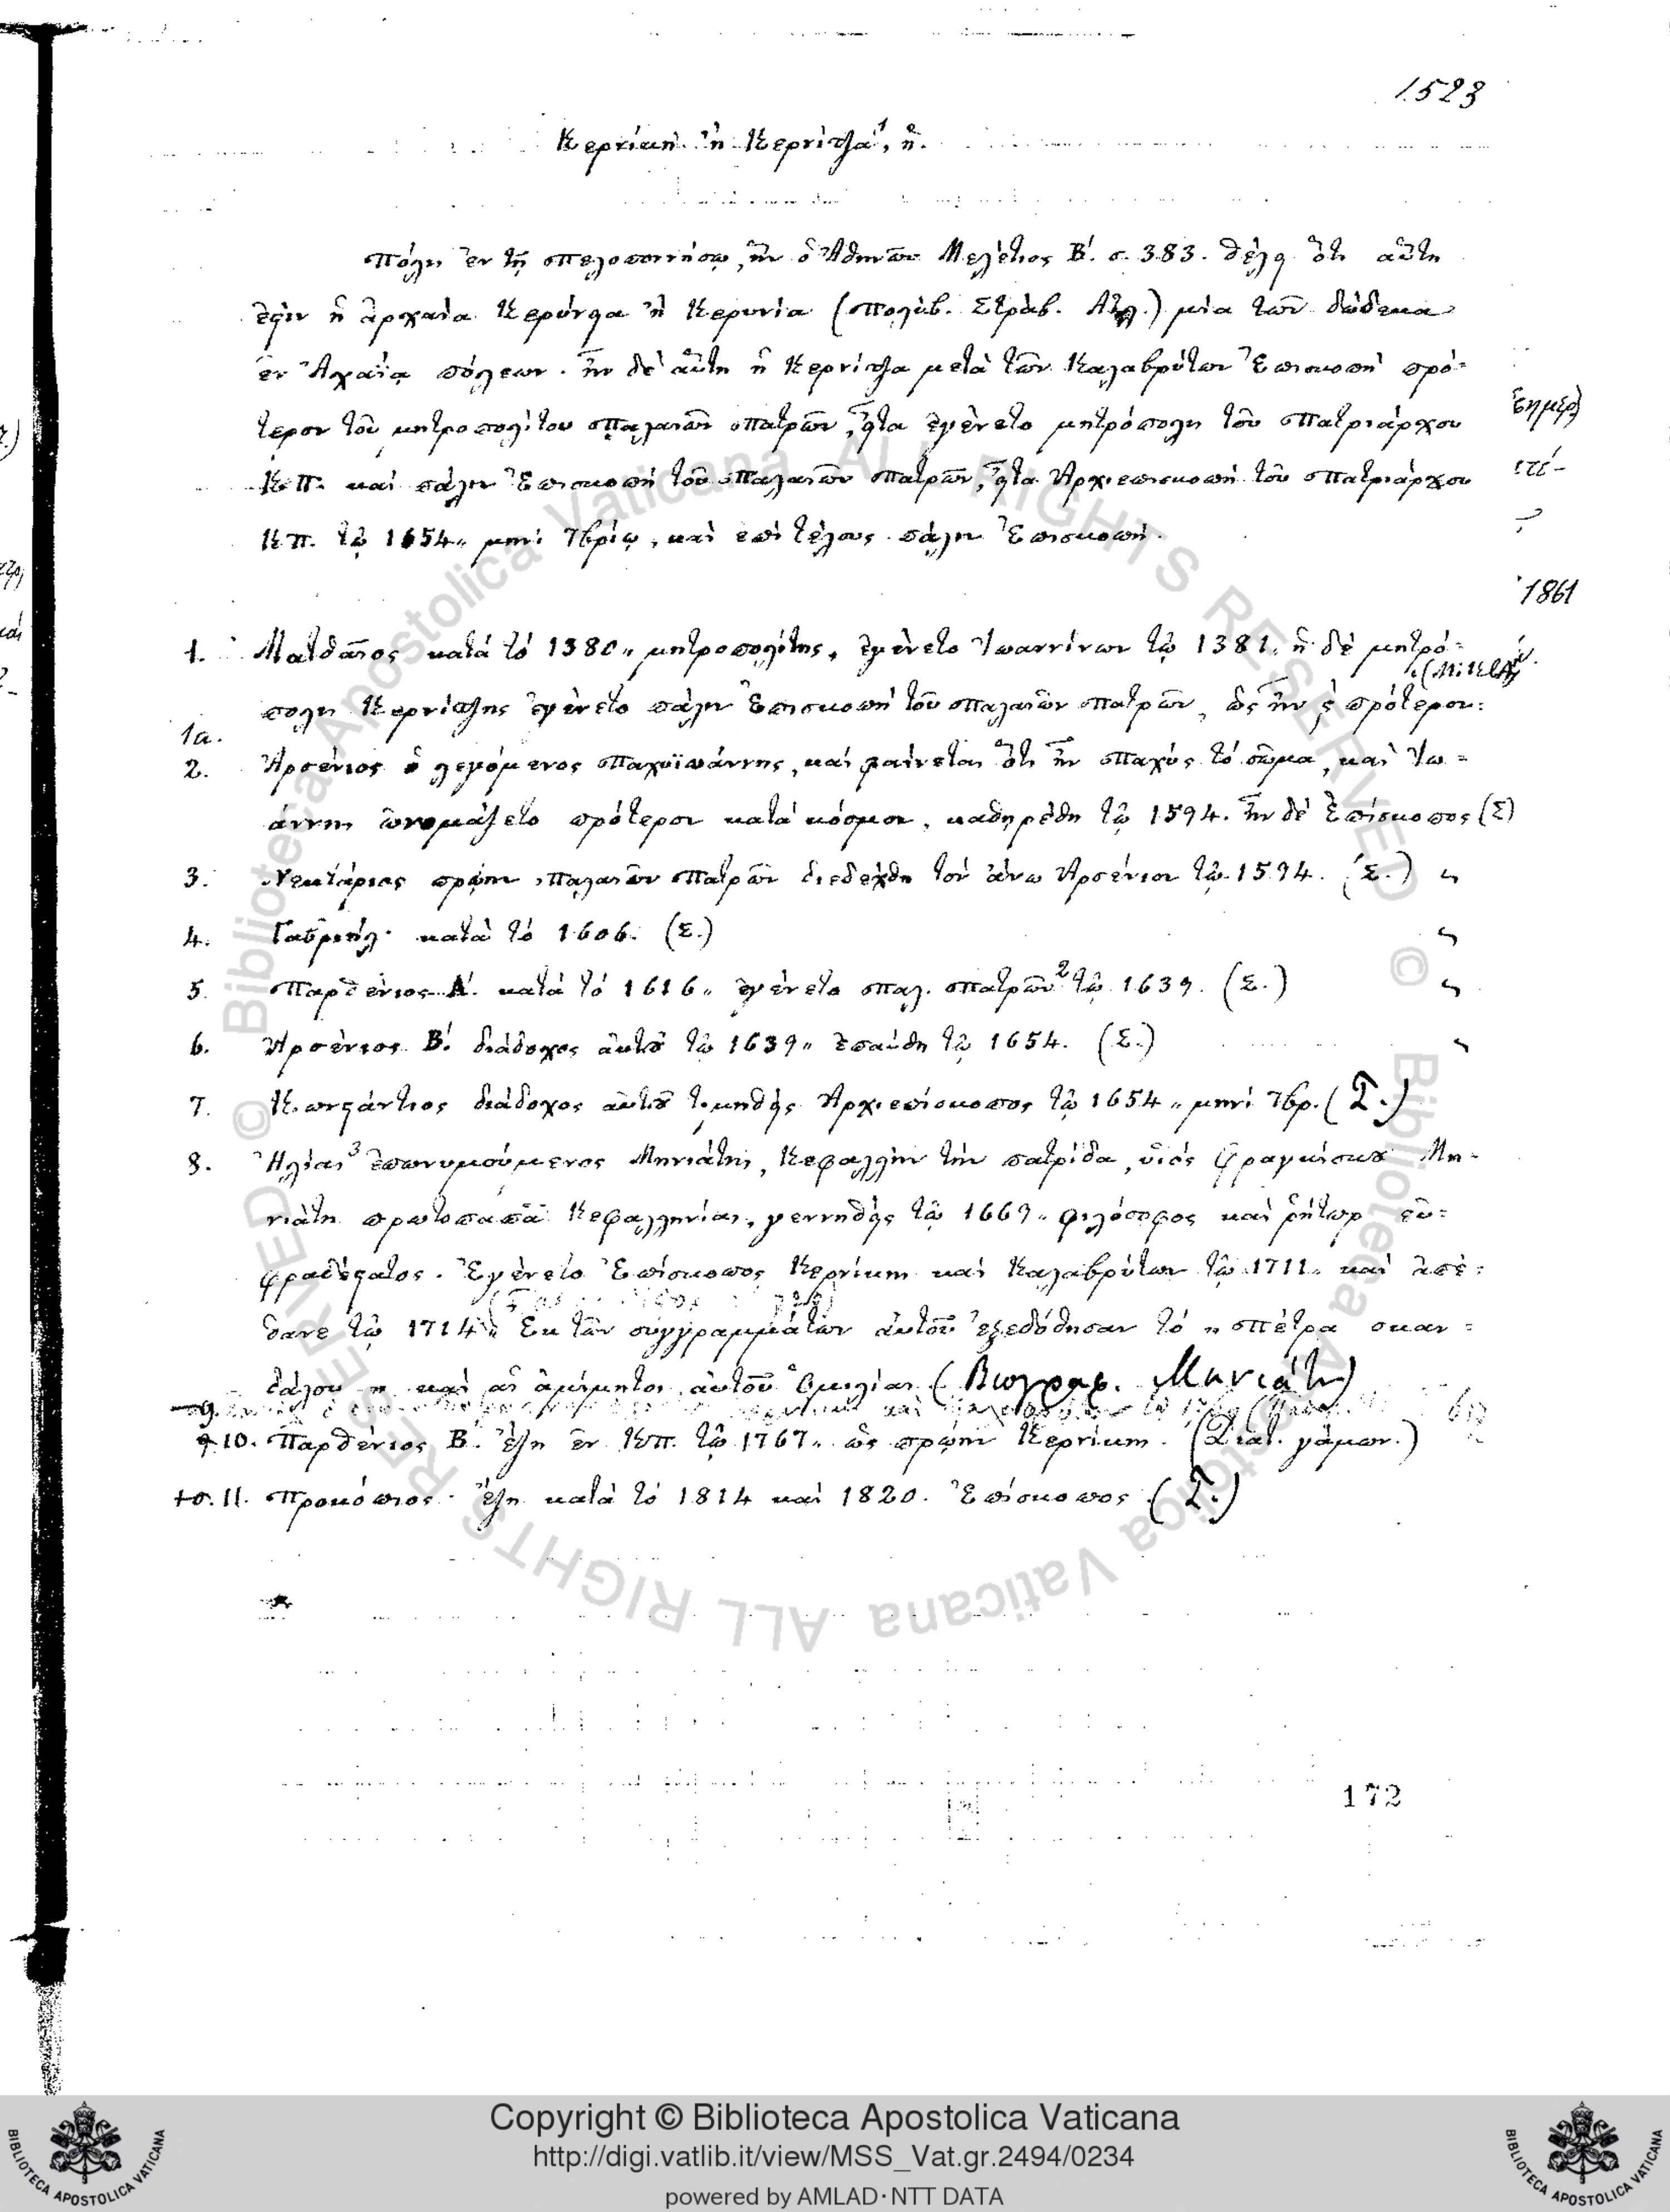 1523
Κερνίκη ἢ Κερνίτζα¹, ἡ.
Πόλις ἐν τῇ Πελοποννήσῳ, ἣν ὁ Ἀθηνῶν Μελέτιος Β΄. σ. 383. θέλει ὅτι αὕτη
ἐστὶν ἡ ἀρχαία Κερύνεια ἢ Κερυνία (Πολύβ. Στράβ.) μία τῶν δώδεκα
ἐν Ἀχαΐᾳ πόλεων. ἦν δὲ αὕτη ἡ Κερνίτζα μετὰ τῶν Καλαβρύτων Ἐπισκοπὴ πρό-
τερον τοῦ μητροπολίτου Παλαιῶν Πατρῶν, εἶτα ἐγένετο μητρόπολις τοῦ Πατριάρχου
Κπ. καὶ πάλιν Ἐπισκοπὴ τοῦ Παλαιῶν Πατρῶν, εἶτα Ἀρχιεπισκοπὴ τοῦ Πατριάρχου
Κπ. τῷ 1654,, μηνὶ 7βρίῳ, καὶ ἐπὶ τέλους πάλιν Ἐπισκοπή.
1861
1. Ματθαῖος κατὰ τὸ 1380,, μητροπολίτης, ἐγένετο Ἰωαννίνων τῷ 1381. ἡ δὲ μητρό-
πολις Κερνίτζης ἐγένετο πάλιν Ἐπισκοπὴ τοῦ Παλαιῶν Πατρῶν, ὡς ἦν πρότερον:
1α.
2. Ἀρσένιος ὁ λεγόμενος Παχυϊωάννης, καὶ φαίνεται ὅτι ἦν Παχὺς τὸ σῶμα, καὶ Ἰω-
άννης ὠνομάζετο πρότερον κατὰ κόσμον, καθῃρέθη τῷ 1594. ἦν δὲ Ἐπίσκοπος (Σ)
3. Νεκτάριος πρῴην Παλαιῶν Πατρῶν διεδέχθη τὸν ἄνω Ἀρσένιον τῷ 1594. (Σ.)
4. Γαβριὴλ κατὰ τὸ 1606. (Σ.)
5. Παρθένιος Α΄. κατὰ τὸ 1616,, ἐγένετο Παλ. Πατρῶν² τῷ 1639. (Σ.)
6. Ἀρσένιος Β΄. διάδοχος αὐτοῦ τῷ 1639,, ἐπαύθη τῷ 1654. (Σ.)
7. Κωνστάντιος διάδοχος αὐτοῦ τιμηθεὶς Ἀρχιεπίσκοπος τῷ 1654,, μηνὶ 7βρ. (Σ.)
8. Ἠλίας³ ἐπονυμούμενος Μηνιάτης, Κεφαλλὴν τὴν πατρίδα, υἱὸς Φραγκίσκου Μη-
νιάτη πρωτοπαπᾶ Κεφαλληνίας, γεννηθεὶς τῷ 1669,, φιλόσοφος καὶ ῥήτωρ εὐ-
φραδέστατος. Ἐγένετο Ἐπίσκοπος Κερνίκης καὶ Καλαβρύτων τῷ 1711,, καὶ ἀπέ-
θανε τῷ 1714,, Ἐκ τῶν συγγραμμάτων αὐτοῦ ἐξεδόθησαν τὸ ,, Πέτρα σκαν-
δάλου ,, καὶ αἱ ἀμίμητοι αὐτοῦ Ὁμιλίαι (Βιογραφ. Μηνιάτη)
9.
10. Παρθένιος Β΄. ἔζη ἐν Κπ. τῷ 1767,, ὡς πρῴην Κερνίκης. (Διατ. γάμων.)
11. Προκόπιος. ἔζη κατὰ τὸ 1814 καὶ 1820. Ἐπίσκοπος (Σ.)
172
© Biblioteca Apostolica Vaticana ALL RIGHTS RESERVED © Biblioteca Apostolica Vaticana ALL RIGHTS RESERVED
Copyright © Biblioteca Apostolica Vaticana
http://digi.vatlib.it/view/MSS_Vat.gr.2494/0234
powered by AMLAD·NTT DATA
BIBLIOTECA APOSTOLICA VATICANA
BIBLIOTECA APOSTOLICA VATICANA